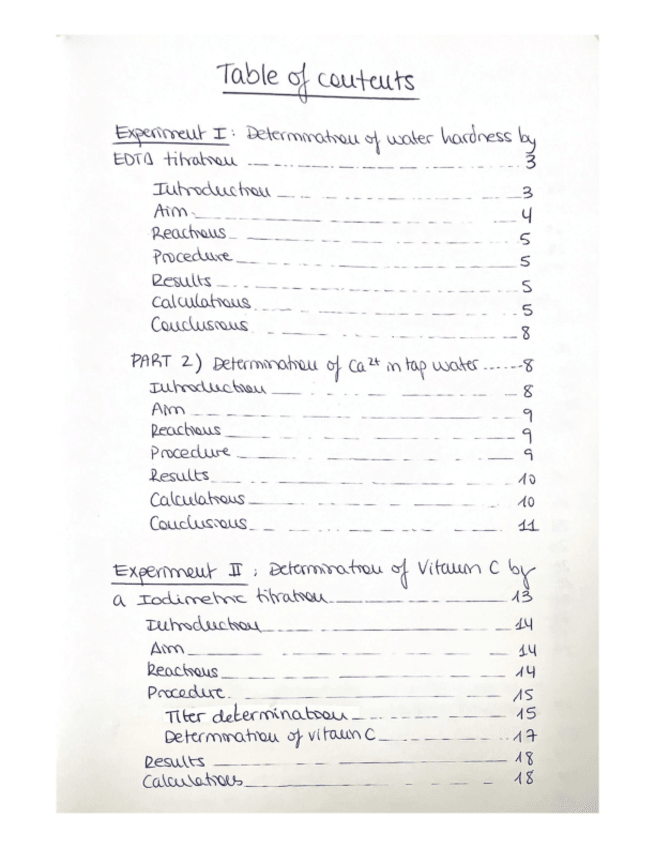 Table of contents
Experiment I: Determination of water hardness by
EDTA titration 3
Introduction 3
Aim 4
Reactions 5
Procedure 5
Results 5
Calculations 5
Conclusions 8
PART 2) Determination of Ca²⁺ in tap water 8
Introduction 8
Aim 9
Reactions 9
Procedure 9
Results 10
Calculations 10
Conclusions 11
Experiment II: Determination of Vitamin C by
a Iodimetric titration 13
Introduction 14
Aim 14
Reactions 14
Procedure 15
Titer determination 15
Determination of vitamin C 17
Results 18
Calculations 18